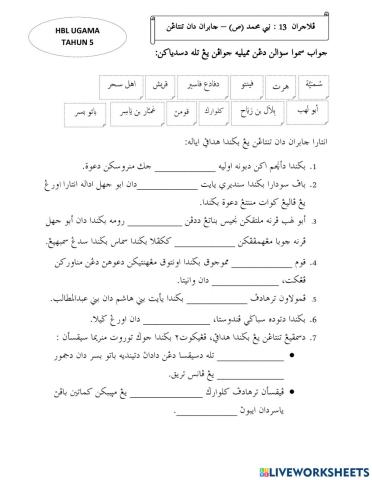 HBL UGAMA
TAHUN 5
ڤلاجرن 13 : نبي محمد (ص) – جابرن دان تنتاڠن
جواب سموا سؤالن دڠن ممیليه جواڤن يڠ تله دسدياكن:
سُميّة هرت ڤينتو دفادع فاسير قريش اهل سحر
أبو لهب بِلَال بن رَبَاح كلوارݢ قومن عَمّار بن يَاسِر باتو بسر
انتارا جابرن دان تنتاڠن يڠ بݢيندا هداڤي اياله:
1. بݢيندا دأنچم اكن دبونه اوليه ____________ جك منروسكن دعوة.
2. باڤ سودارا بݢيندا سنديري يايت ____________ دان ابو جهل اداله انتارا اورڠ
يڠ ڤاليڠ كوات مننتڠ دعوة بݢيندا.
3. أبو لهب ڤرنه ملتقكن نجيس بناتڠ ددڤن ____________ رومه بݢيندا دان أبو جهل
ڤرنه چوبا مڠهمڤقكن ____________ ككڤلا بݢيندا سماس بݢيندا سدڠ سمبهيڠ.
4. قوم ____________ مموجوق بݢيندا اونتوق مڠهنتيكن دعوهن دڠن مناوركن
ڤڠكت، ____________ دان وانيتا.
5. ڤمولاون ترهادڤ ____________ بݢيندا يأيت بني هاشم دان بني عبدالمطالب.
6. بݢيندا دتودوه سباݢاي ڤندوستا، ____________ دان اورڠ ݢيلا.
7. دسمڤيڠ تنتاڠن يڠ بݢيندا هداڤي، ڤڠيكوت٢ بݢيندا جوݢ توروت منريما سيقسأن :
• ____________ تله دسيقسا دڠن دادان دتينديه باتو بسر دان دجمور
____________ يڠ ڤانس تريق.
• ڤيقسأن ترهادڤ كلوارݢ ____________ يڠ مپببكن كماتين باڤن
ياسردان ايبون ____________.
LIVEWORKSHEETS